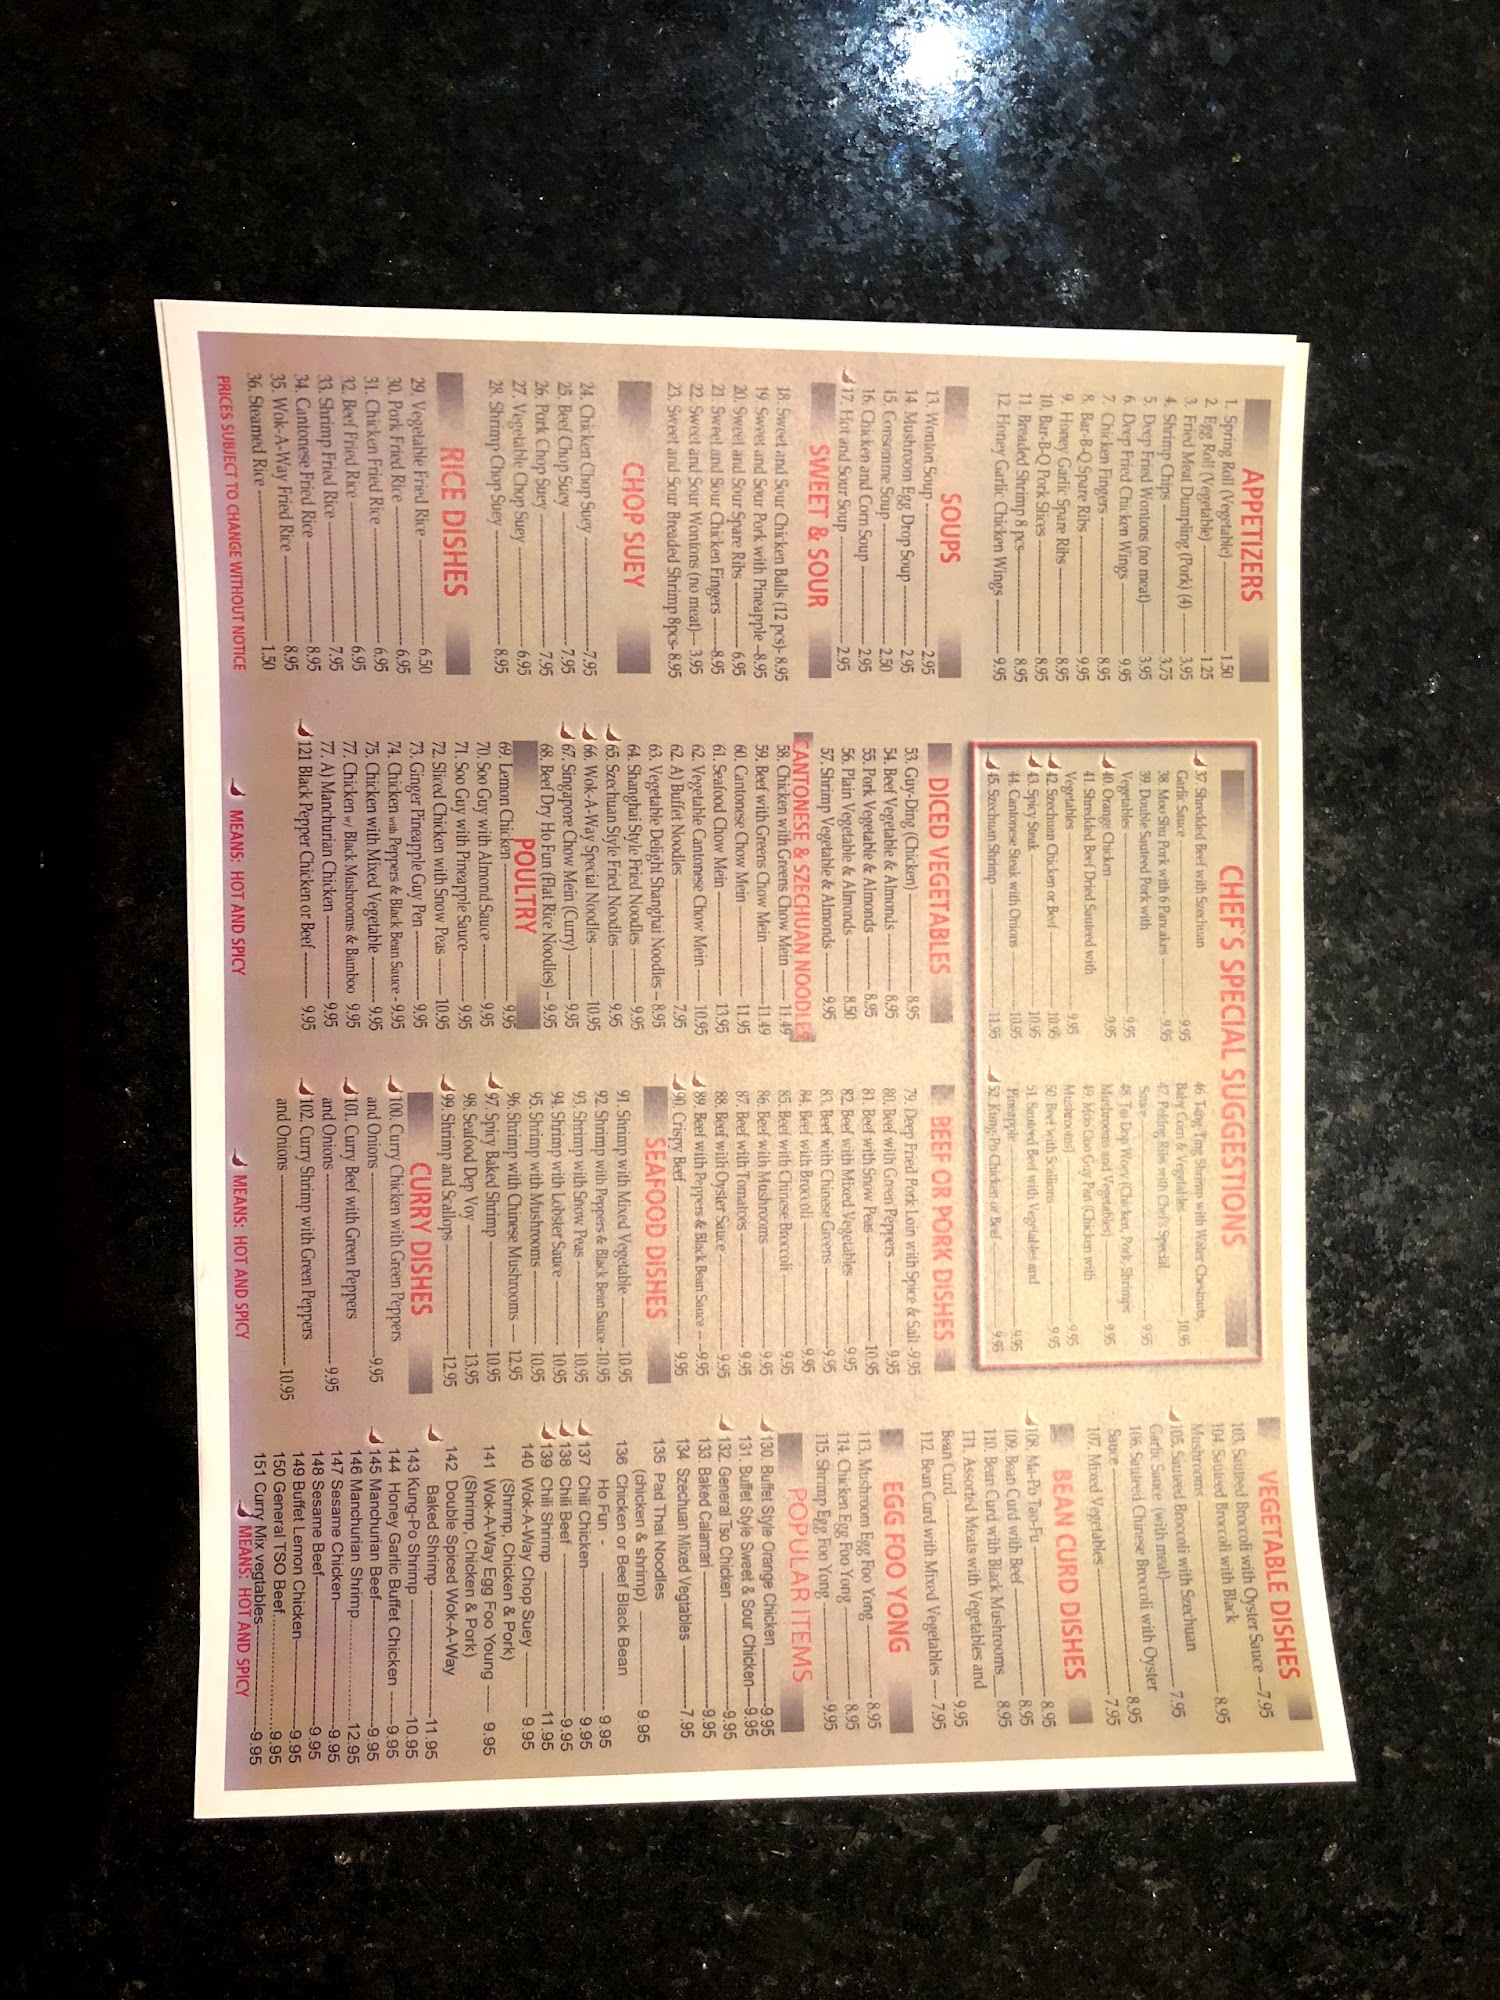 APPETIZERS
1. Spring Roll (Vegetable) 1.50
2. Egg Roll (Vegetable) 1.25
3. Fried Meat Dumpling (Pork) (4) 3.95
4. Shrimp Chips 3.75
5. Deep Fried Wontons (no meat) 3.95
6. Deep Fried Chicken Wings 9.95
7. Chicken Fingers 8.95
8. Bar-B-Q Spare Ribs 9.95
9. Honey Garlic Spare Ribs 8.95
10. Bar-B-Q Pork Slices 8.95
11. Breaded Shrimp 8 pcs 8.95
12. Honey Garlic Chicken Wings 9.95
SOUPS
13. Wonton Soup 2.95
14. Mushroom Egg Drop Soup 2.95
15. Consomme Soup 2.50
16. Chicken and Corn Soup 2.95
17. Hot and Sour Soup 2.95
SWEET & SOUR
18. Sweet and Sour Chicken Balls (12 pcs)- 8.95
19. Sweet and Sour Pork with Pineapple -8.95
20. Sweet and Sour Spare Ribs 6.95
21. Sweet and Sour Chicken Fingers 8.95
22. Sweet and Sour Wontons (no meat) 3.95
23. Sweet and Sour Breaded Shrimp 8pcs- 8.95
CHOP SUEY
24. Chicken Chop Suey 7.95
25. Beef Chop Suey 7.95
26. Pork Chop Suey 7.95
27. Vegetable Chop Suey 6.95
28. Shrimp Chop Suey 8.95
RICE DISHES
29. Vegetable Fried Rice 6.50
30. Pork Fried Rice 6.95
31. Chicken Fried Rice 6.95
32. Beef Fried Rice 6.95
33. Shrimp Fried Rice 7.95
34. Cantonese Fried Rice 8.95
35. Wok-A-Way Fried Rice 8.95
36. Steamed Rice 1.50
PRICES SUBJECT TO CHANGE WITHOUT NOTICE
CHEF'S SPECIAL SUGGESTIONS
37. Shredded Beef with Szechuan
Garlic Sauce 9.95
38. Moo Shu Pork with 6 Pancakes 9.95
39. Double Sauteed Pork with
Vegetables 9.95
40. Orange Chicken 9.95
41. Shredded Beef Dried Sauteed with
Vegetables 9.95
42. Szechuan Chicken or Beef 10.95
43. Spicy Steak 10.95
44. Cantonese Steak with Onions 10.95
45. Szechuan Shrimp 11.95
46. Tang Tng Shrimp with Water Chestnuts,
Baby Corn & Vegetables 10.95
47. Peking Ribs with Chef's Special
Sauce 9.95
48. Tai Dop Woey (Chicken, Pork, Shrimps
Mushrooms and Vegetables) 9.95
49. Moo Goo Guy Pan (Chicken with
Mushrooms) 9.95
50. Beef with Scallions 9.95
51. Sauteed Beef with Vegetables and
Pineapple 9.95
52. Kung-Po Chicken or Beef 9.95
DICED VEGETABLES
53. Guy-Ding (Chicken) 8.95
54. Beef Vegetable & Almonds 8.95
55. Pork Vegetable & Almonds 8.95
56. Plain Vegetable & Almonds 8.50
57. Shrimp Vegetable & Almonds 9.95
CANTONESE & SZECHUAN NOODLES
58. Chicken with Greens Chow Mein 11.49
59. Beef with Greens Chow Mein 11.49
60. Cantonese Chow Mein 11.95
61. Seafood Chow Mein 13.95
62. Vegetable Cantonese Chow Mein 10.95
62. A) Buffet Noodles 7.95
63. Vegetable Delight Shanghai Noodles - 8.95
64. Shanghai Style Fried Noodles 9.95
65. Szechuan Style Fried Noodles 9.95
66. Wok-A-Way Special Noodles 10.95
67. Singapore Chow Mein (Curry) 9.95
68. Beef Dry Ho Fun (Flat Rice Noodles) - 9.95
POULTRY
69. Lemon Chicken 9.95
70. Soo Guy with Almond Sauce 9.95
71. Soo Guy with Pineapple Sauce 9.95
72. Sliced Chicken with Snow Peas 10.95
73. Ginger Pineapple Guy Pen 9.95
74. Chicken with Peppers & Black Bean Sauce - 9.95
75. Chicken with Mixed Vegetable 9.95
77. Chicken w/ Black Mushrooms & Bamboo 9.95
77. A) Manchurian Chicken 9.95
121 Black Pepper Chicken or Beef 9.95
MEANS: HOT AND SPICY
BEEF OR PORK DISHES
79. Deep Fried Pork Loin with Spice & Salt -9.95
80. Beef with Green Peppers 9.95
81. Beef with Snow Peas 10.95
82. Beef with Mixed Vegetables 9.95
83. Beef with Chinese Greens 9.95
84. Beef with Broccoli 9.95
85. Beef with Chinese Broccoli 9.95
86. Beef with Mushrooms 9.95
87. Beef with Tomatoes 9.95
88. Beef with Oyster Sauce 9.95
89. Beef with Peppers & Black Bean Sauce 9.95
90. Crispy Beef 9.95
SEAFOOD DISHES
91. Shrimp with Mixed Vegetable 10.95
92. Shrimp with Peppers & Black Bean Sauce -10.95
93. Shrimp with Snow Peas 10.95
94. Shrimp with Lobster Sauce 10.95
95. Shrimp with Mushrooms 10.95
96. Shrimp with Chinese Mushrooms 12.95
97. Spicy Baked Shrimp 10.95
98. Seafood Dep Voy 13.95
99. Shrimp and Scallops 12.95
CURRY DISHES
100. Curry Chicken with Green Peppers
and Onions 9.95
101. Curry Beef with Green Peppers
and Onions 9.95
102. Curry Shrimp with Green Peppers
and Onions 10.95
MEANS: HOT AND SPICY
VEGETABLE DISHES
103. Sauteed Broccoli with Oyster Sauce 7.95
104. Sauteed Broccoli with Black
Mushrooms 8.95
105. Sauteed Broccoli with Szechuan
Garlic Sauce (with meat) 7.95
106. Sauteed Chinese Broccoli with Oyster
Sauce 8.95
107. Mixed Vegetables 7.95
BEAN CURD DISHES
108. Ma-Po Tao-Fu 8.95
109. Bean Curd with Beef 8.95
110. Bean Curd with Black Mushrooms 8.95
111. Assorted Meats with Vegetables and
Bean Curd 9.95
112. Bean Curd with Mixed Vegetables 7.95
EGG FOO YONG
113. Mushroom Egg Foo Yong 8.95
114. Chicken Egg Foo Yong 8.95
115. Shrimp Egg Foo Yong 9.95
POPULAR ITEMS
130. Buffet Style Orange Chicken 9.95
131. Buffet Style Sweet & Sour Chicken 9.95
132. General Tso Chicken 9.95
133. Baked Calamari 9.95
134 Szechuan Mixed Vegtables 7.95
135 Pad Thai Noodles
(chicken & shrimp) 9.95
136 Chicken or Beef Black Bean
Ho Fun - 9.95
137 Chili Chicken 9.95
138 Chili Beef 9.95
139 Chili Shrimp 11.95
140 Wok-A-Way Chop Suey 9.95
(Shrimp, Chicken & Pork)
141 Wok-A-Way Egg Foo Young 9.95
(Shrimp, Chicken & Pork)
142 Double Spiced Wok-A-Way
Baked Shrimp 11.95
143 Kung-Po Shrimp 10.95
144 Honey Garlic Buffet Chicken 9.95
145 Manchurian Beef 9.95
146 Manchurian Shrimp 12.95
147 Sesame Chicken 9.95
148 Sesame Beef 9.95
149 Buffet Lemon Chicken 9.95
150 General TSO Beef 9.95
151 Curry Mix vegtables 9.95
MEANS: HOT AND SPICY